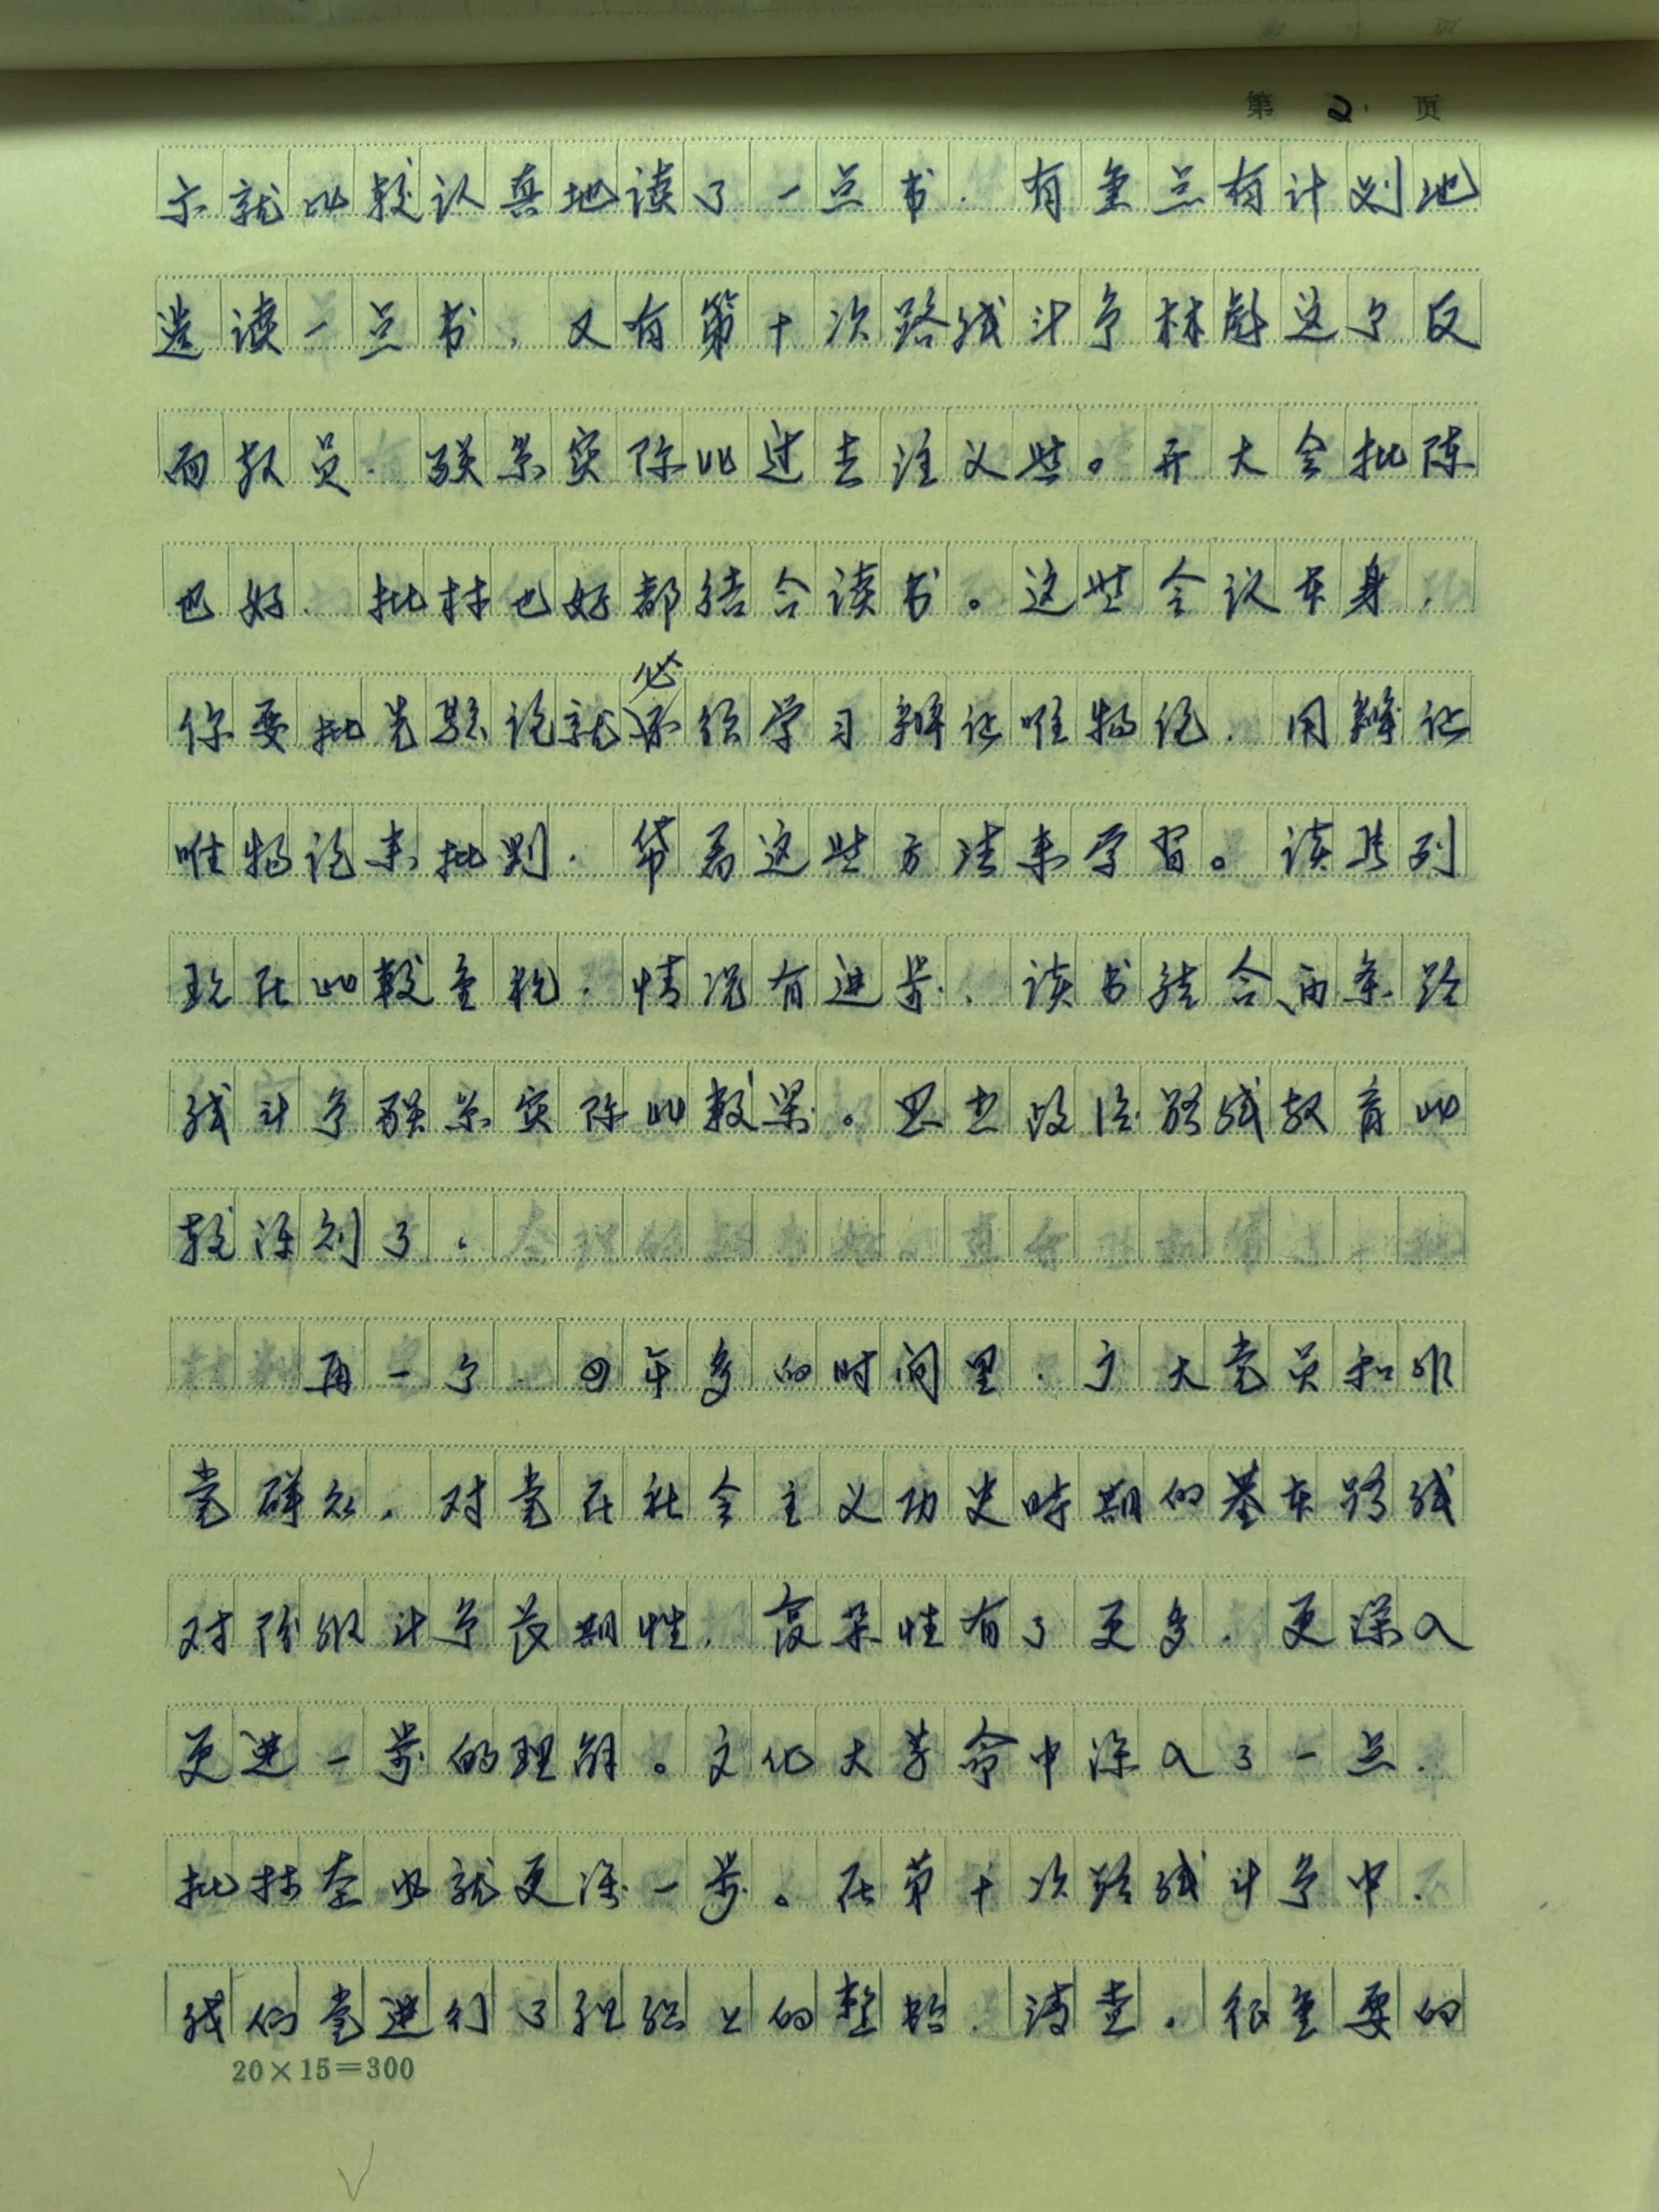 第 2 页
示就比较认真地读了一点书，有重点有计划地
选读一点书，又有第十次路线斗争林彪这个反
面教员，联系实际比过去注义些。开大会批陈
也好，批林也好都结合读书。这些会议本身，
你要批先验论就必须学习辩证唯物论，用辩证
唯物论来批判，带着这些方法来学习。读马列
现在比较重视，情况有进步，读书结合两条路
线斗争联系实际比较深。思想政治路线教育比
较深刻了。
再一个，四年多的时间里，广大党员和非
党群众，对党在社会主义历史时期的基本路线
对阶级斗争长期性，复杂性有了更多，更深入
更进一步的理解。文化大革命中深入了一点，
批林整风就更深一步。在第十次路线斗争中，
我们党进行了组织上的整顿，清查，很重要的
20×15＝300